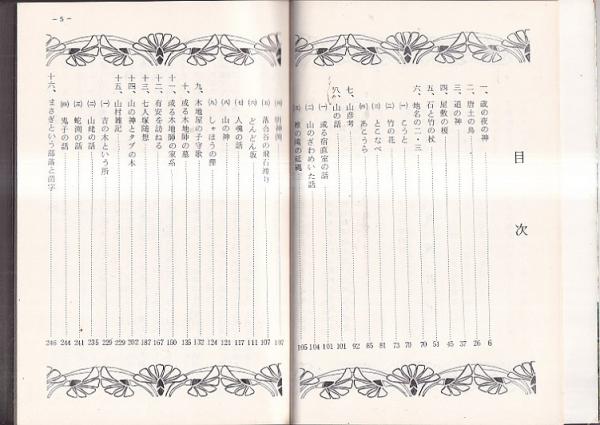 目次
一、歳の夜の神 6
二、唐土の鳥 26
三、道の神 37
四、屋敷の榎 45
五、石と竹の杖 51
六、地名の二・三 70
㈠ こうと 70
㈡ 竹の花 73
㈢ とこなべ 81
㈣ あこうら 85
七、山彦考 92
八、山の話 101
㈠ 或る宿直室の話 101
㈡ 山のざわめいた話 104
㈢ 椎の滝の延縄 105
㈣ 明神淵 107
㈤ 落合谷の飛石渡り 107
㈥ どんどん坂 111
㈦ 人魂の話 117
㈧ 山の神 121
㈨ しゃほうの葎 124
九、木地屋の子守歌 132
十、或る木地師の墓 135
十一、或る木地師の家系 150
十二、有安を訪ねる 167
十三、七人塚随想 187
十四、山の神とタブの木 202
十五、山村雑記 229
㈠ 吉の木という所 229
㈡ 山姥の話 235
㈢ 蛇淵の話 241
㈣ 鬼子の話 244
十六、まさぎという部落と苗字 246
－5－